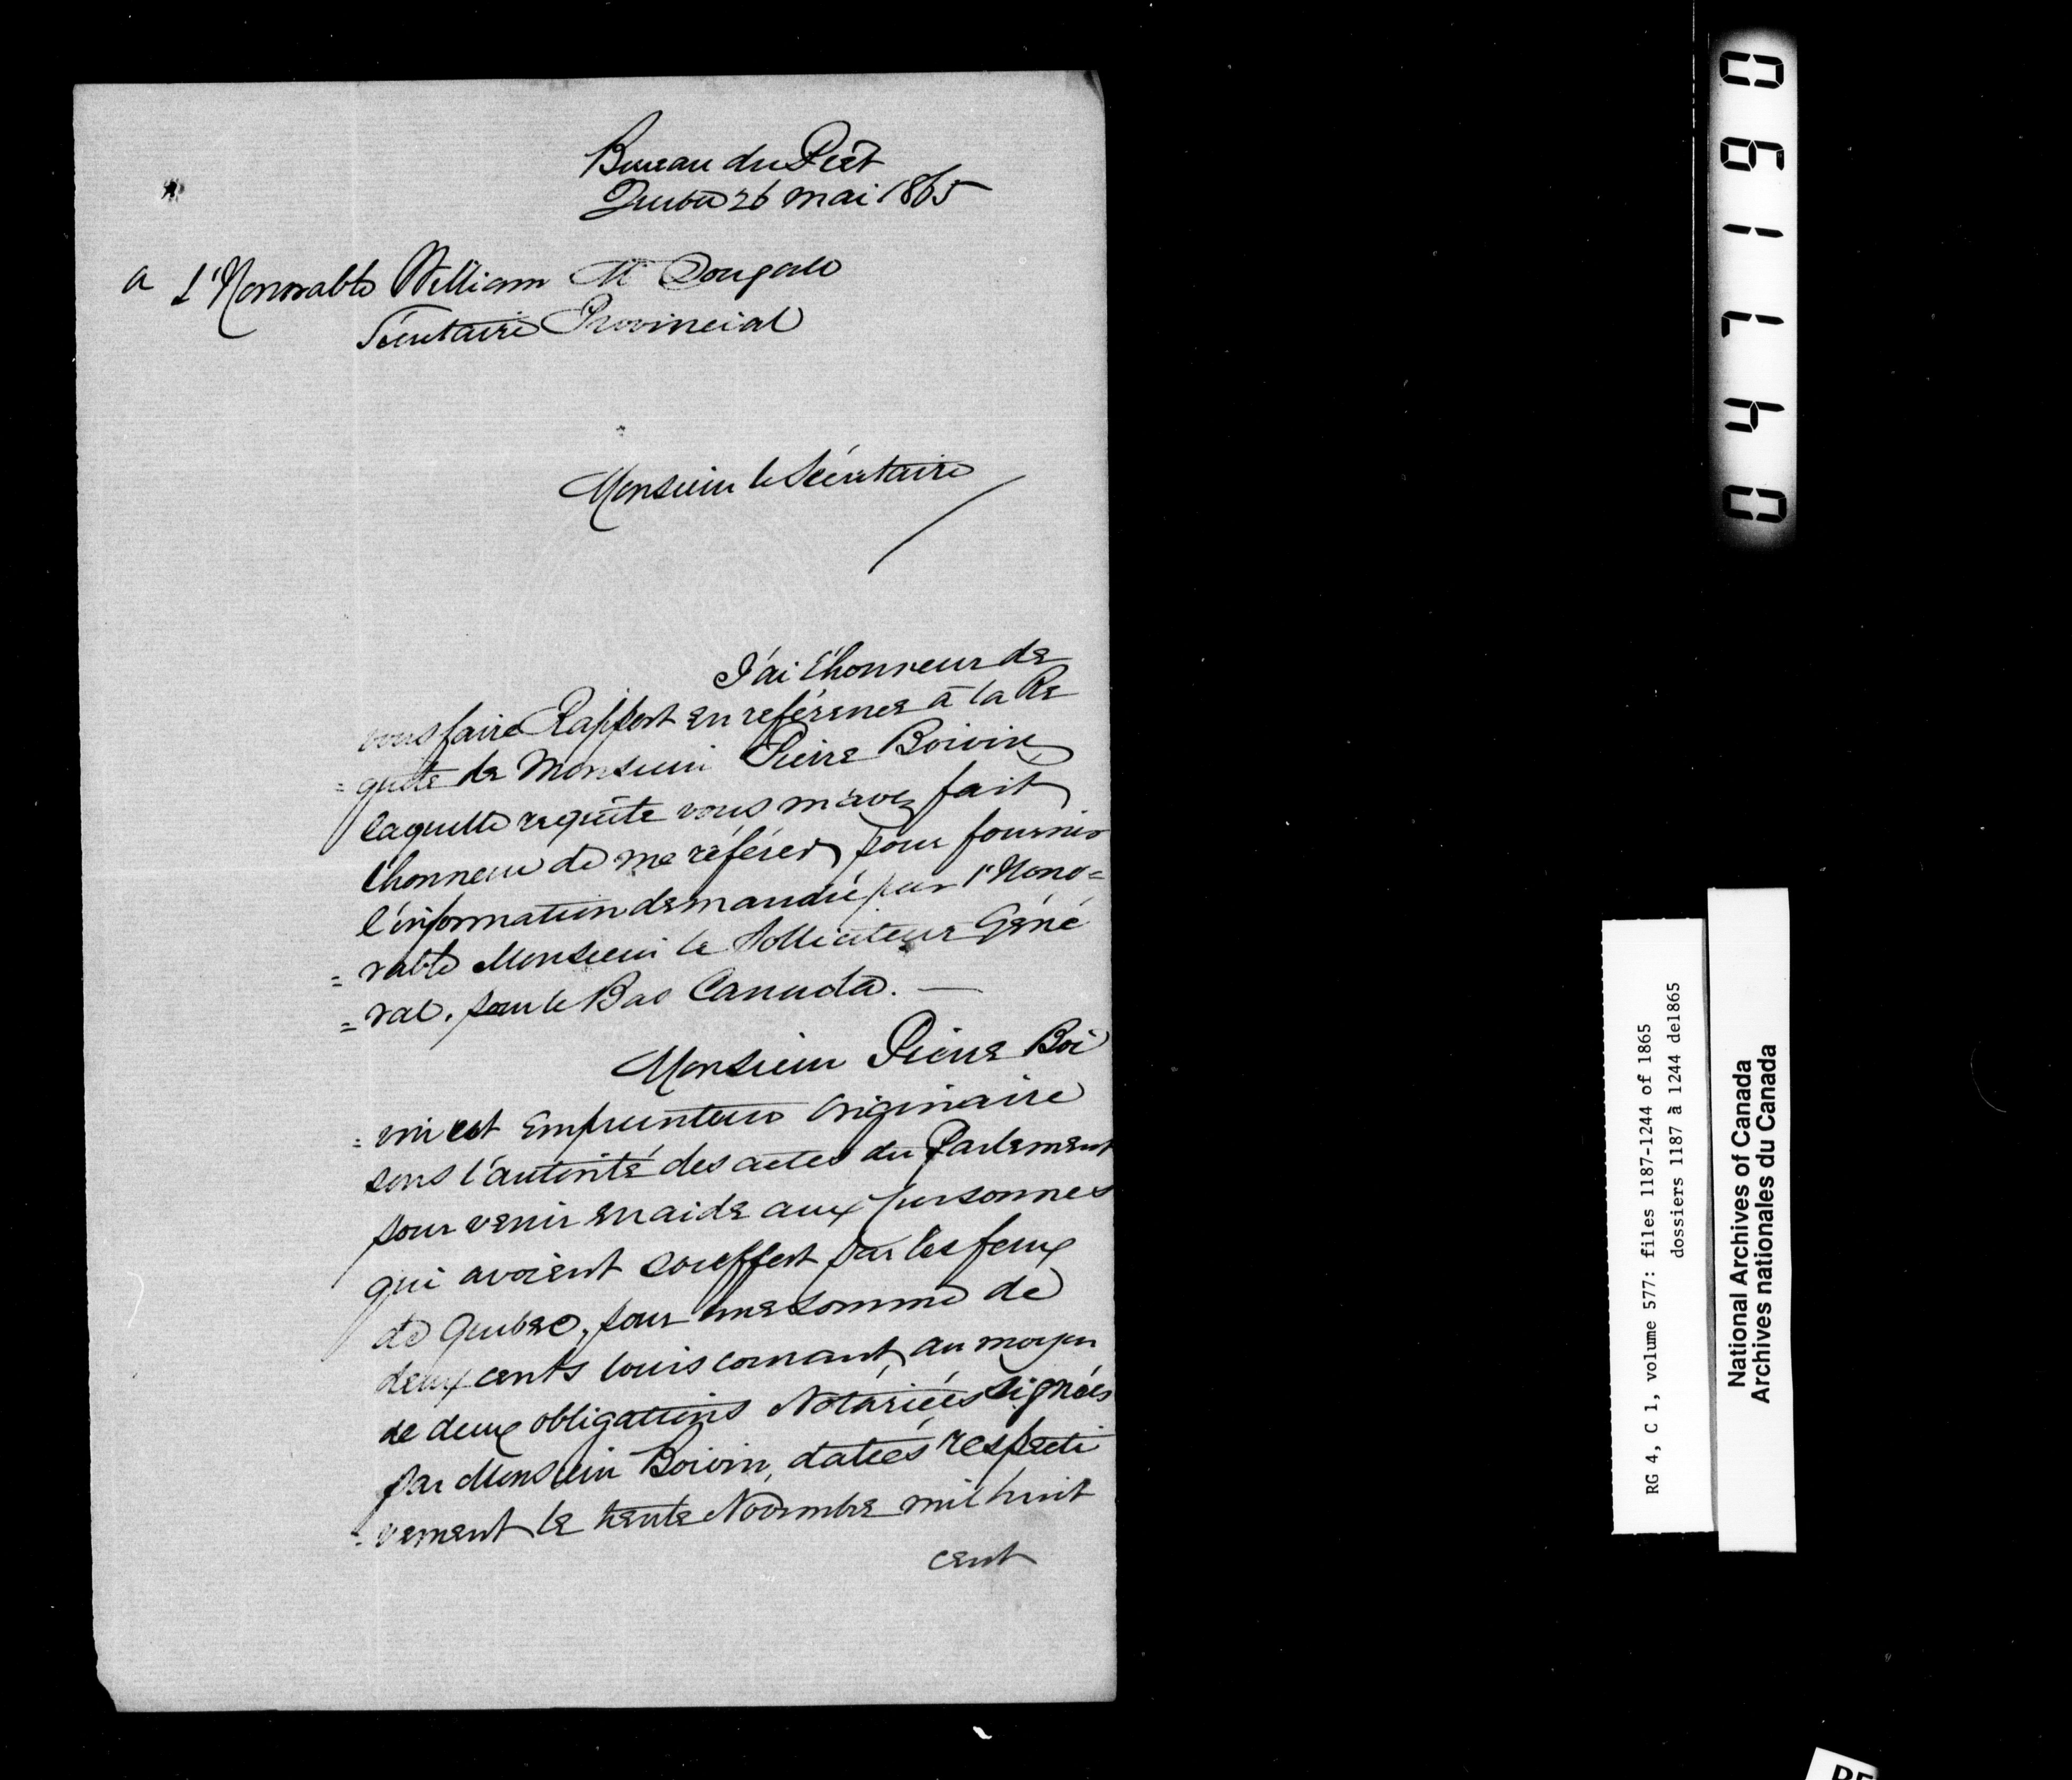 Bureau du Prêt
Québec 26 mai 1865
a L'Honorable William McDougall
Sécrétaire Provincial
Monsieur le Sécrétaire
J'ai l'honneur de
vous faire Rapport en référence à la Re
= quête de Monsieur Pierre Boivin,
laquelle requête vous m'avez fait
l'honneur de me référer, pour fournir
l'information demandée par l'Hono=
= rable Monsieur le Solliciteur Géné
= ral, pour le Bas Canada. —
Monsieur Pierre Boi
= vin est Emprunteur Originaire
sous l'autorité des actes du Parlement
pour venir en aide aux personnes
qui avoient souffert par les feux
de Québec, pour une somme de
deux cents louis courant, au moyen
de deux obligations Notariées signées
par Monsieur Boivin, datées respecti
= vement le trente Novembre mil huit
cent
0 4 7 1 6 0
RG 4, C 1, volume 577: files 1187-1244 of 1865
dossiers 1187 à 1244 de1865
National Archives of Canada
Archives nationales du Canada